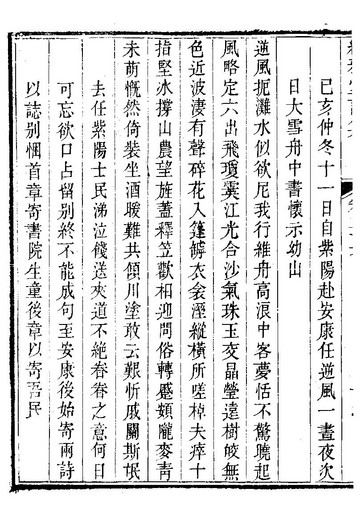 己亥仲冬十一日自紫陽赴安康任逆風一晝夜次
日大雪舟中書懷示幼山
逆風扼灘水似欲尼我行維舟高浪中客夢恬不驚曉起
風略定六出飛瓊霙江光合沙氣珠玉交晶瑩遠樹皎無
色近波淒有聲碎花入篷罅衣衾溼縱橫所嗟棹夫瘁十
指堅冰撐山農望旌蓋釋笠歡相迎問俗轉蹙頞隴麥靑
未萌慨然倚裝坐酒暖難共傾川塗敢云艱忻戚關斯氓
去任紫陽士民涕泣餞送夾道不絶眷眷之意何日
可忘欲口占留別終不能成句至安康後始寄兩詩
以誌別悃首章寄書院生童後章以寄吾民